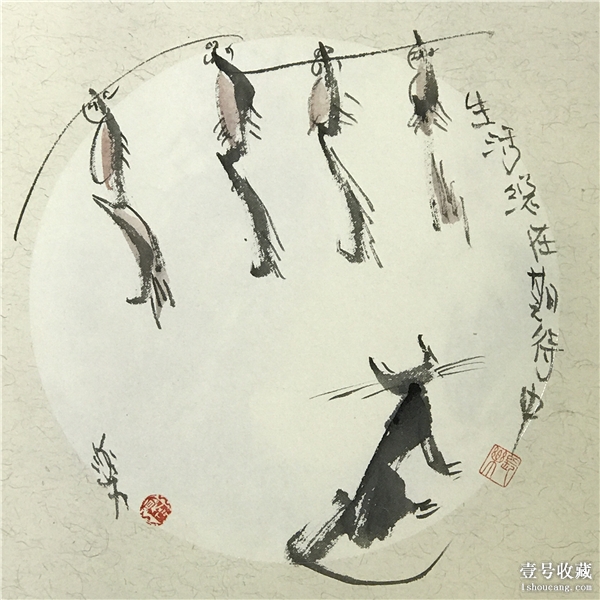 生活總在期待中
樂
壹号收藏
1shoucang.com